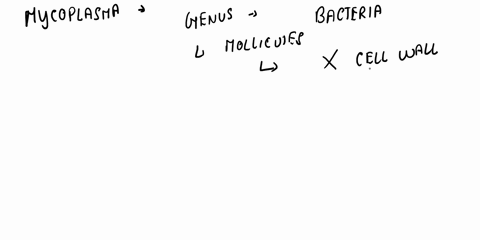 MYCOPLASMA → GENUS → BACTERIA
↳ MOLLICUTES
↳ X CELL WALL